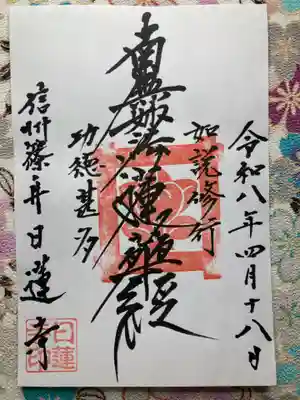 令和八年四月十八日
如説修行
南無妙法蓮華経
功徳甚多
信州篠ノ井日蓮寺